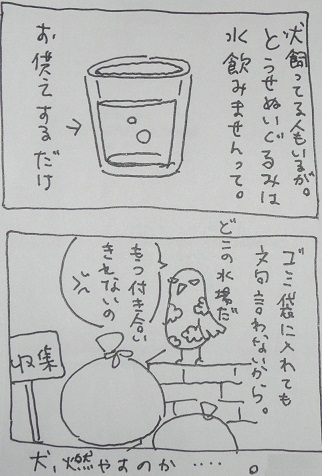 犬飼ってる人もいるが。
どうせぬいぐるみは
水飲みませんって。
お供えするだけ
→
ゴミ袋に入れても
文句言わないから。
どこの水場だ
もう付き合い
きれないの
収集
犬、燃やすのか……。